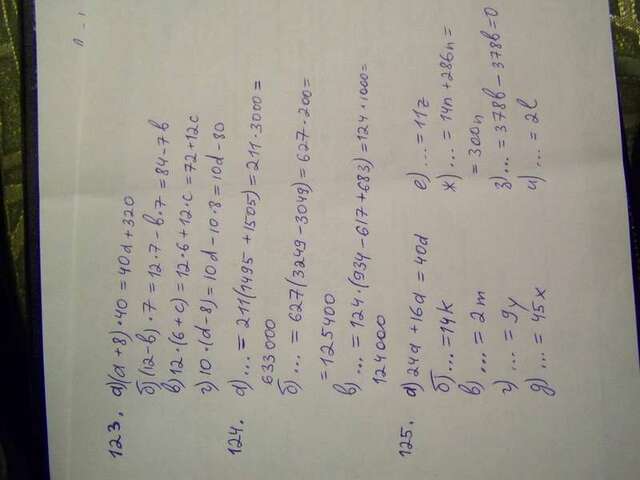 123. а)(a+8)·40=40a+320
б)(12-в)·7=12·7-в·7=84-7в
в)12·(6+c)=12·6+12·c=72+12c
г)10·(d-8)=10d-10·8=10d-80
124. а)...=211(1495+1505)=211·3000=
633000
б)...=627(3249-3049)=627·200=
=125400
в)...=124·(934-617+683)=124·1000=
124000
125. а)24a+16a=40a
б)...=14k
в)...=2m
г)...=9y
д)...=45x
е)...=11z
ж)...=14n+286n=
=300n
з)...=378в-378в=0
и)...=2l